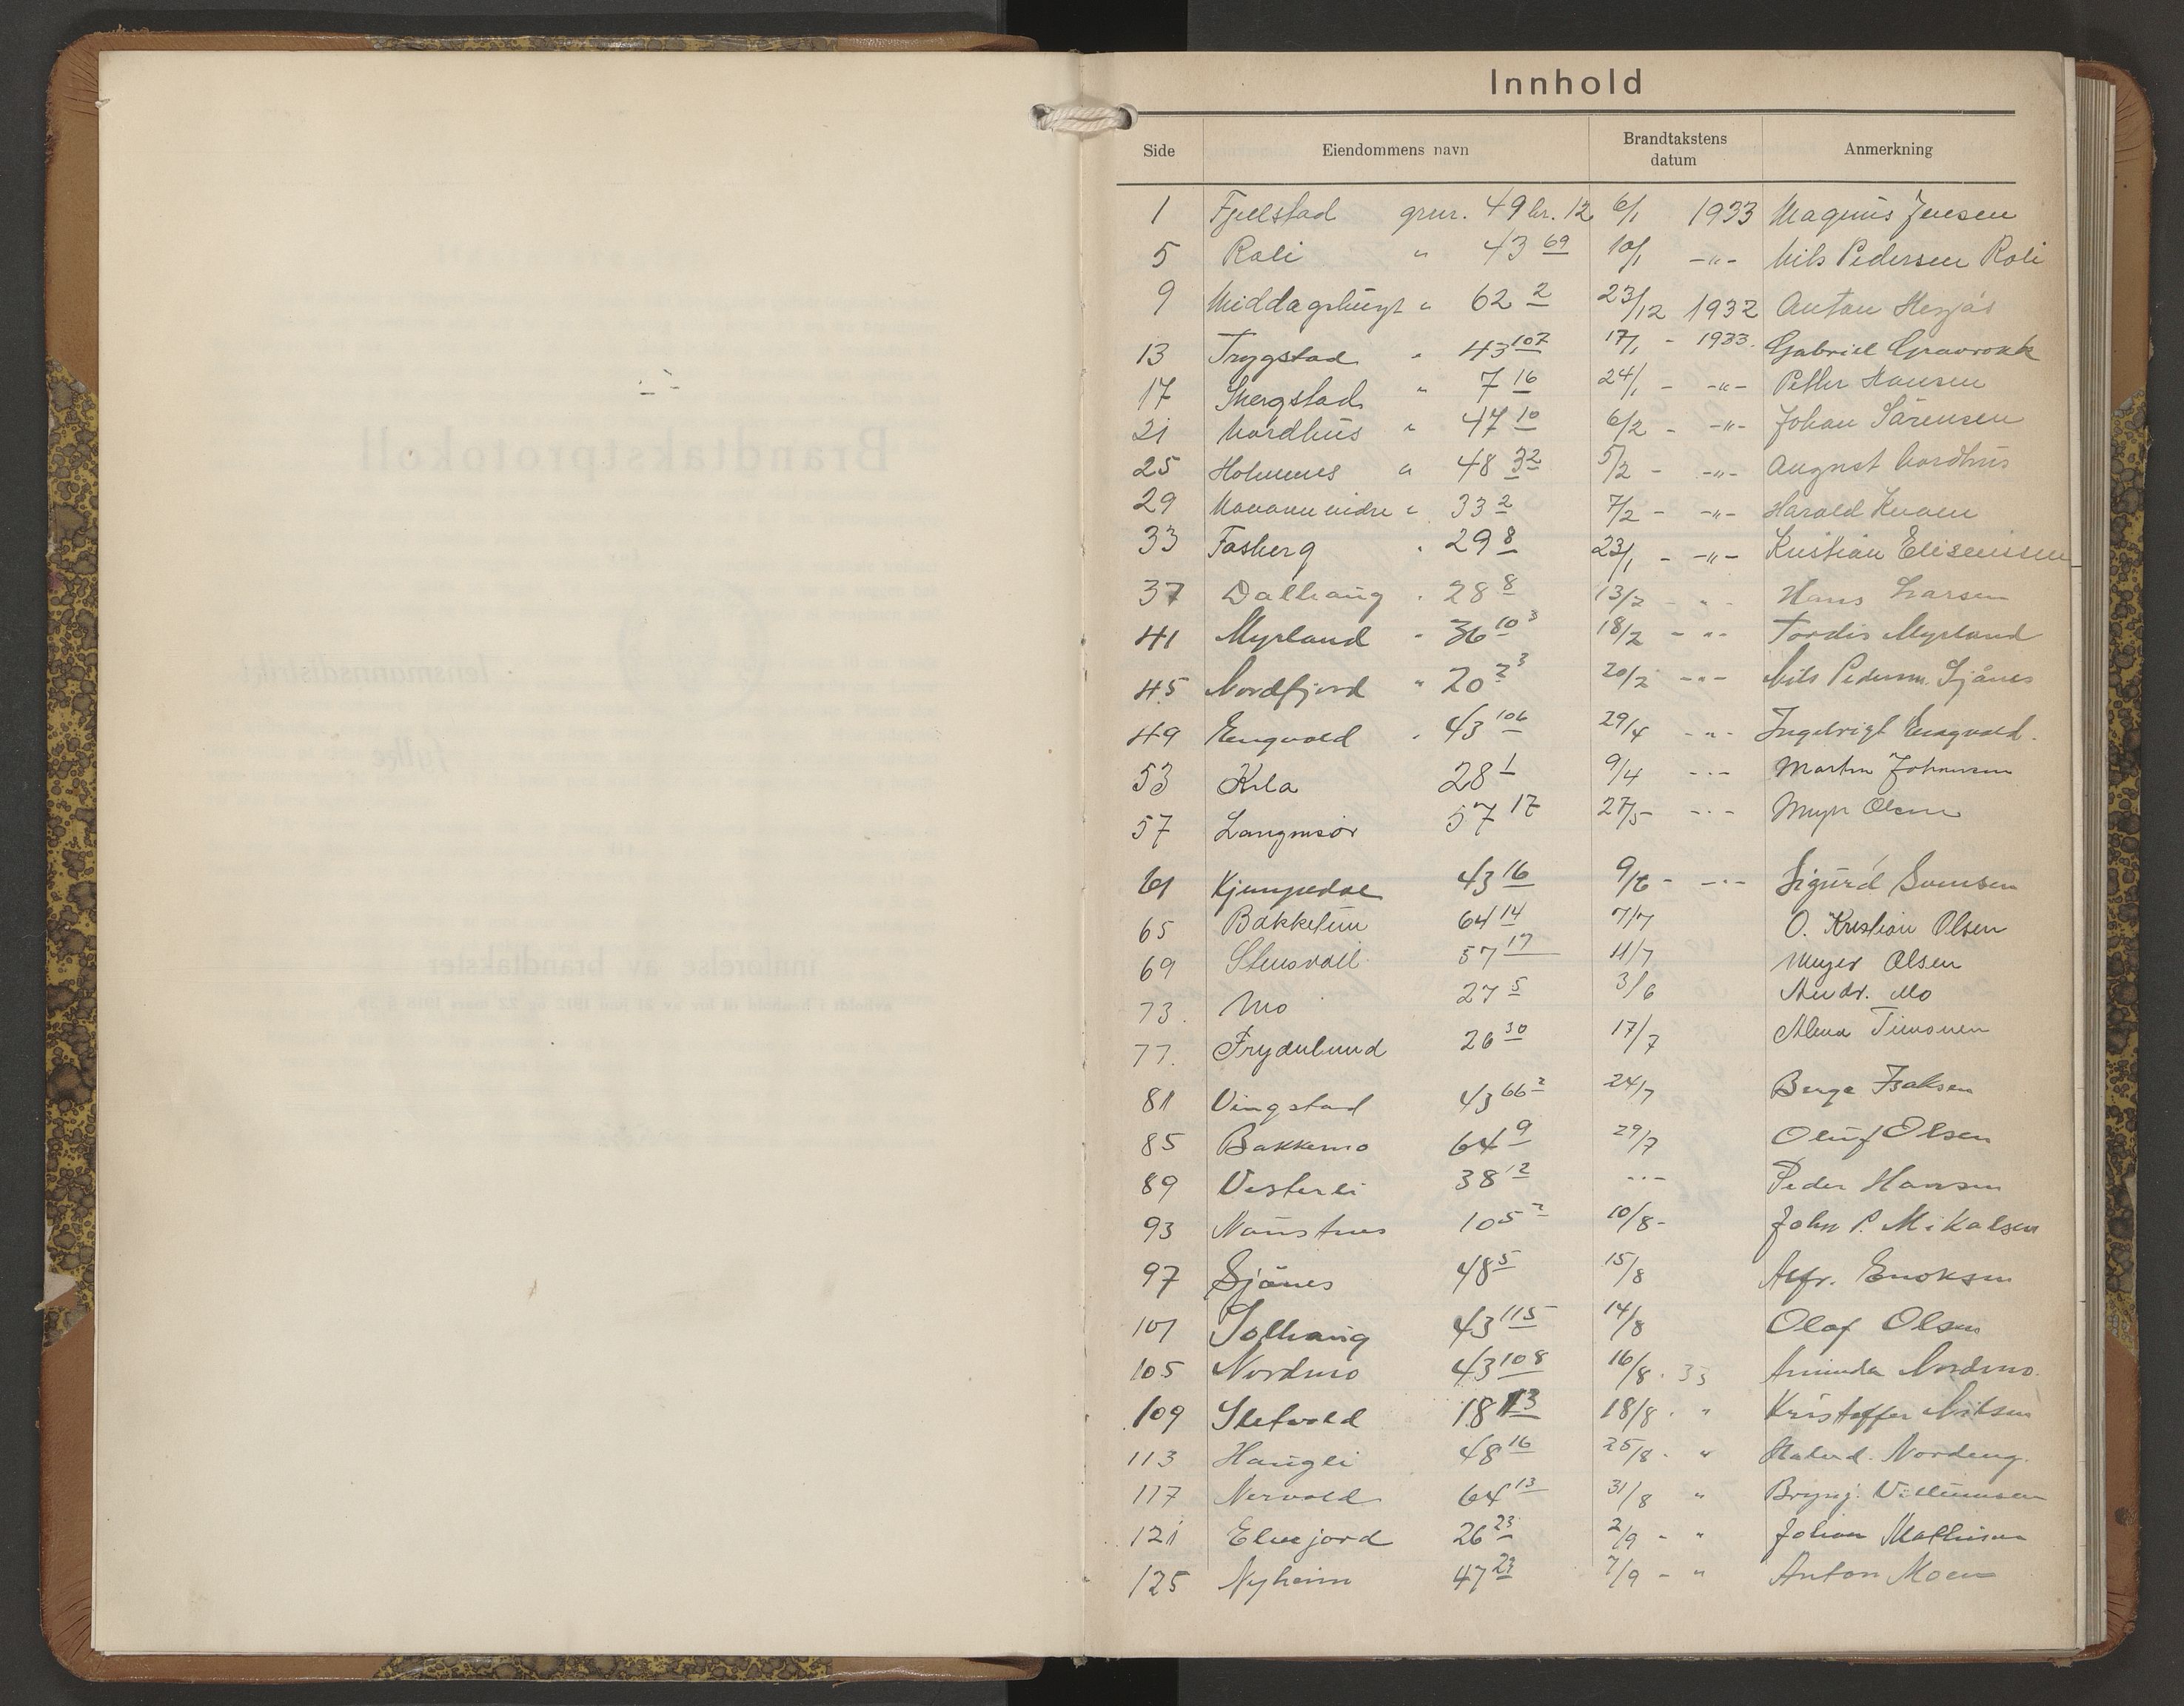 Innhold
Side Eiendommens navn Brandtakstens datum Anmerkning
1 Fjellstad grnr. 49 br. 12 6/1 1933 Magnus Jensen
5 Roli " 43 69 10/1 -"- Nils Pedersen Roli
9 " 62 2 23/12 1932 Anton
13 Trygstad " 43 107 17/1 - 1933. Gabriel Gravrokk
17 " 7 16 24/1 - -"- Petter Hansen
21 Nordhus " 47 10 6/2 - -"- Johan Sørensen
25 Holmnes " 48 32 5/2 - -"- August Nordhus
29 " 33 2 7/2 - -"- Harald
33 Fosberg " 29 8 23/1 - -"- Kristian Eliseussen
37 Dalhaug " 28 8 13/2 - " - Hans Larsen
41 Myrland " 36 10 3 18/2 - " - Tordis Myrland
45 Nordfjord " 20 2 3 20/2 - " - Nils Pedersen Sjånes
49 Engvold " 43 106 29/4 - " - Ingebrigt Engvold.
53 28 1 9/4 - " - Martin Johansen
57 57 17 27/5 - - " - Olsen
61 43 16 9/6 - - " - Sigurd Svensen
65 Bakketun 64 14 7/7 O. Kristian Olsen
69 Stensvoll 57 17 11/7 Meyer Olsen
73. Mo 27 5 3/6 Andr. Mo
77. Frydenlund 26 30 17/7 Alma
81 Vingstad 43 66 2 24/7 Isaksen
85 Bakkemo 64 9 29/7 Oluf Olsen
89 Vesterli 38 12 - " - Peder Hansen
93 Naustnes 105 2 10/8 - John P. Mikalsen
97 Sjånes 48 5 15/8 Alfr. Enoksen
101 Solhaug 43 115 14/8 Olaf Olsen
105 Nordmo 43 108 16/8 . 33 Nordmo.
109 Sletvold 18 13 18/8 . " Kristoffer Nilsen
113 Haugli 48 16 25/8 . " Nordeng.
117 Nervold 64 13 31/8 "
121 Elvejord 26 23 2/9 - " Johan Mathisen
125 Nyheim 47 23 7/9 - " Anton Moen